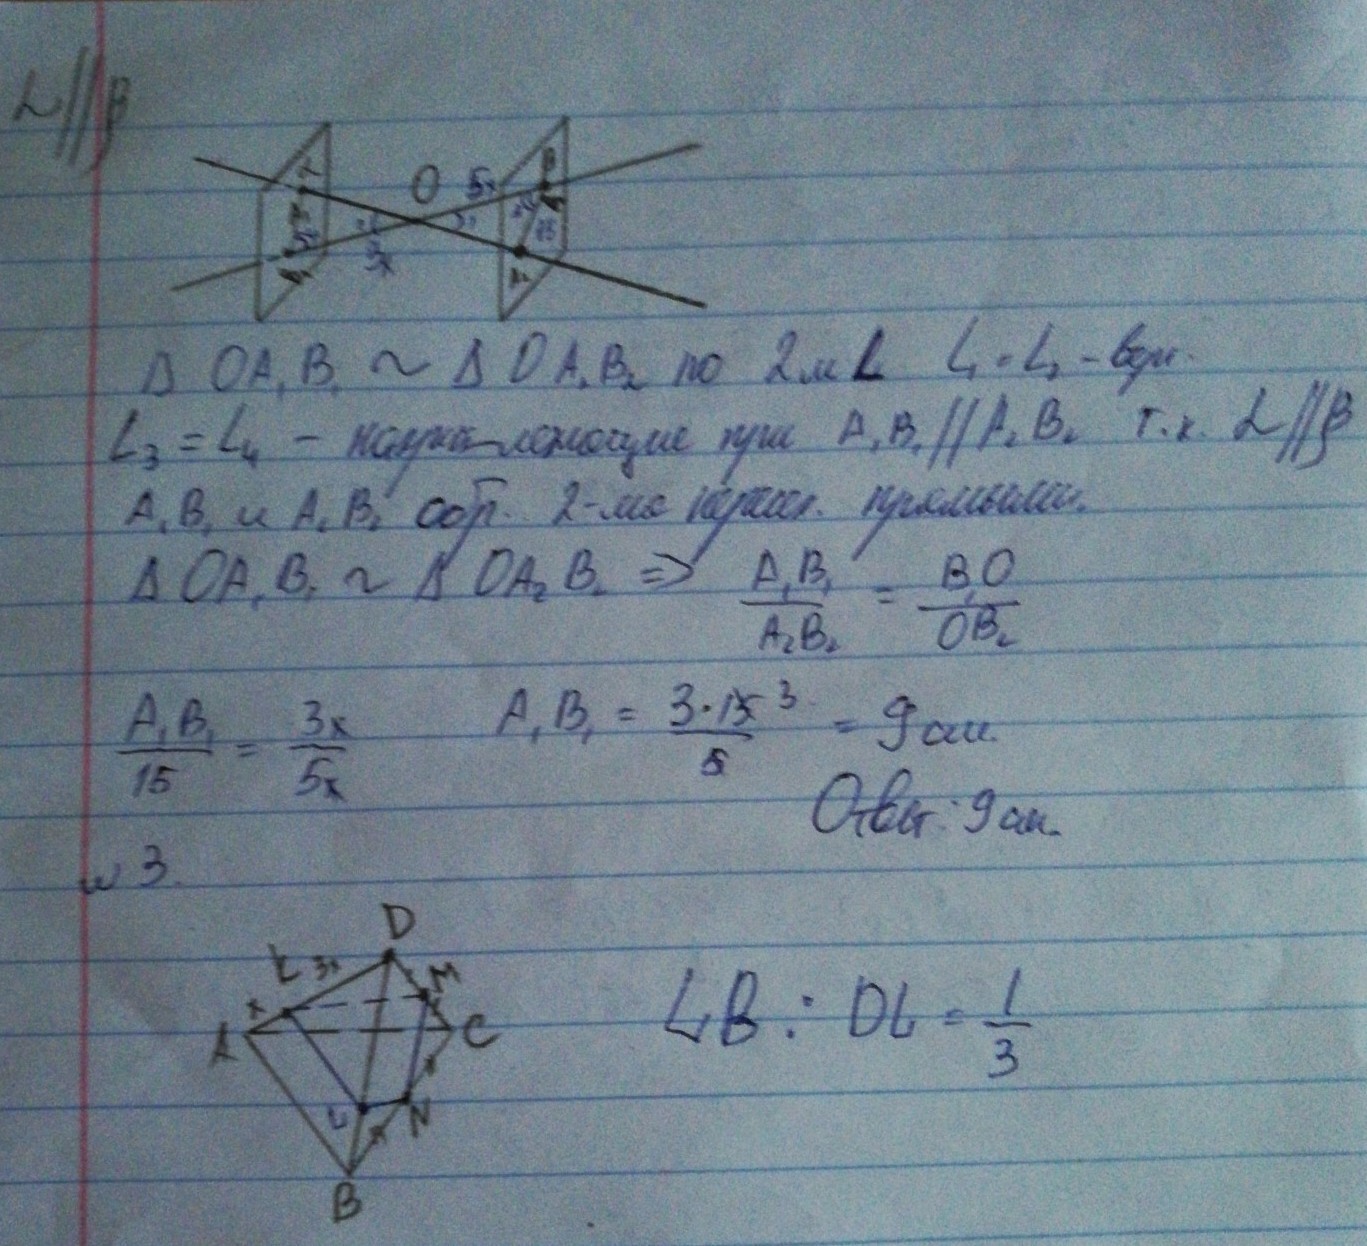 α//β
O 5x
3x
15
Δ OA₁B₁ ~ Δ OA₂B₂ по 2м ∠ ∠₁=∠₂ - верт.
∠₃=∠₄ - лежащие при A₁B₁//A₂B₂ т.к. α//β
A₁B₁ и A₂B₂ обр. 2-мя прямыми.
Δ OA₁B₁ ~ Δ OA₂B₂ => A₁B₁/A₂B₂ = B₁O/OB₂
A₁B₁/15 = 3x/5x A₁B₁ = 3·15 3/5 = 9 см.
Ответ: 9 см.
№3.
D
K 3x M
x
A C
L N
B
LB : DL = 1/3